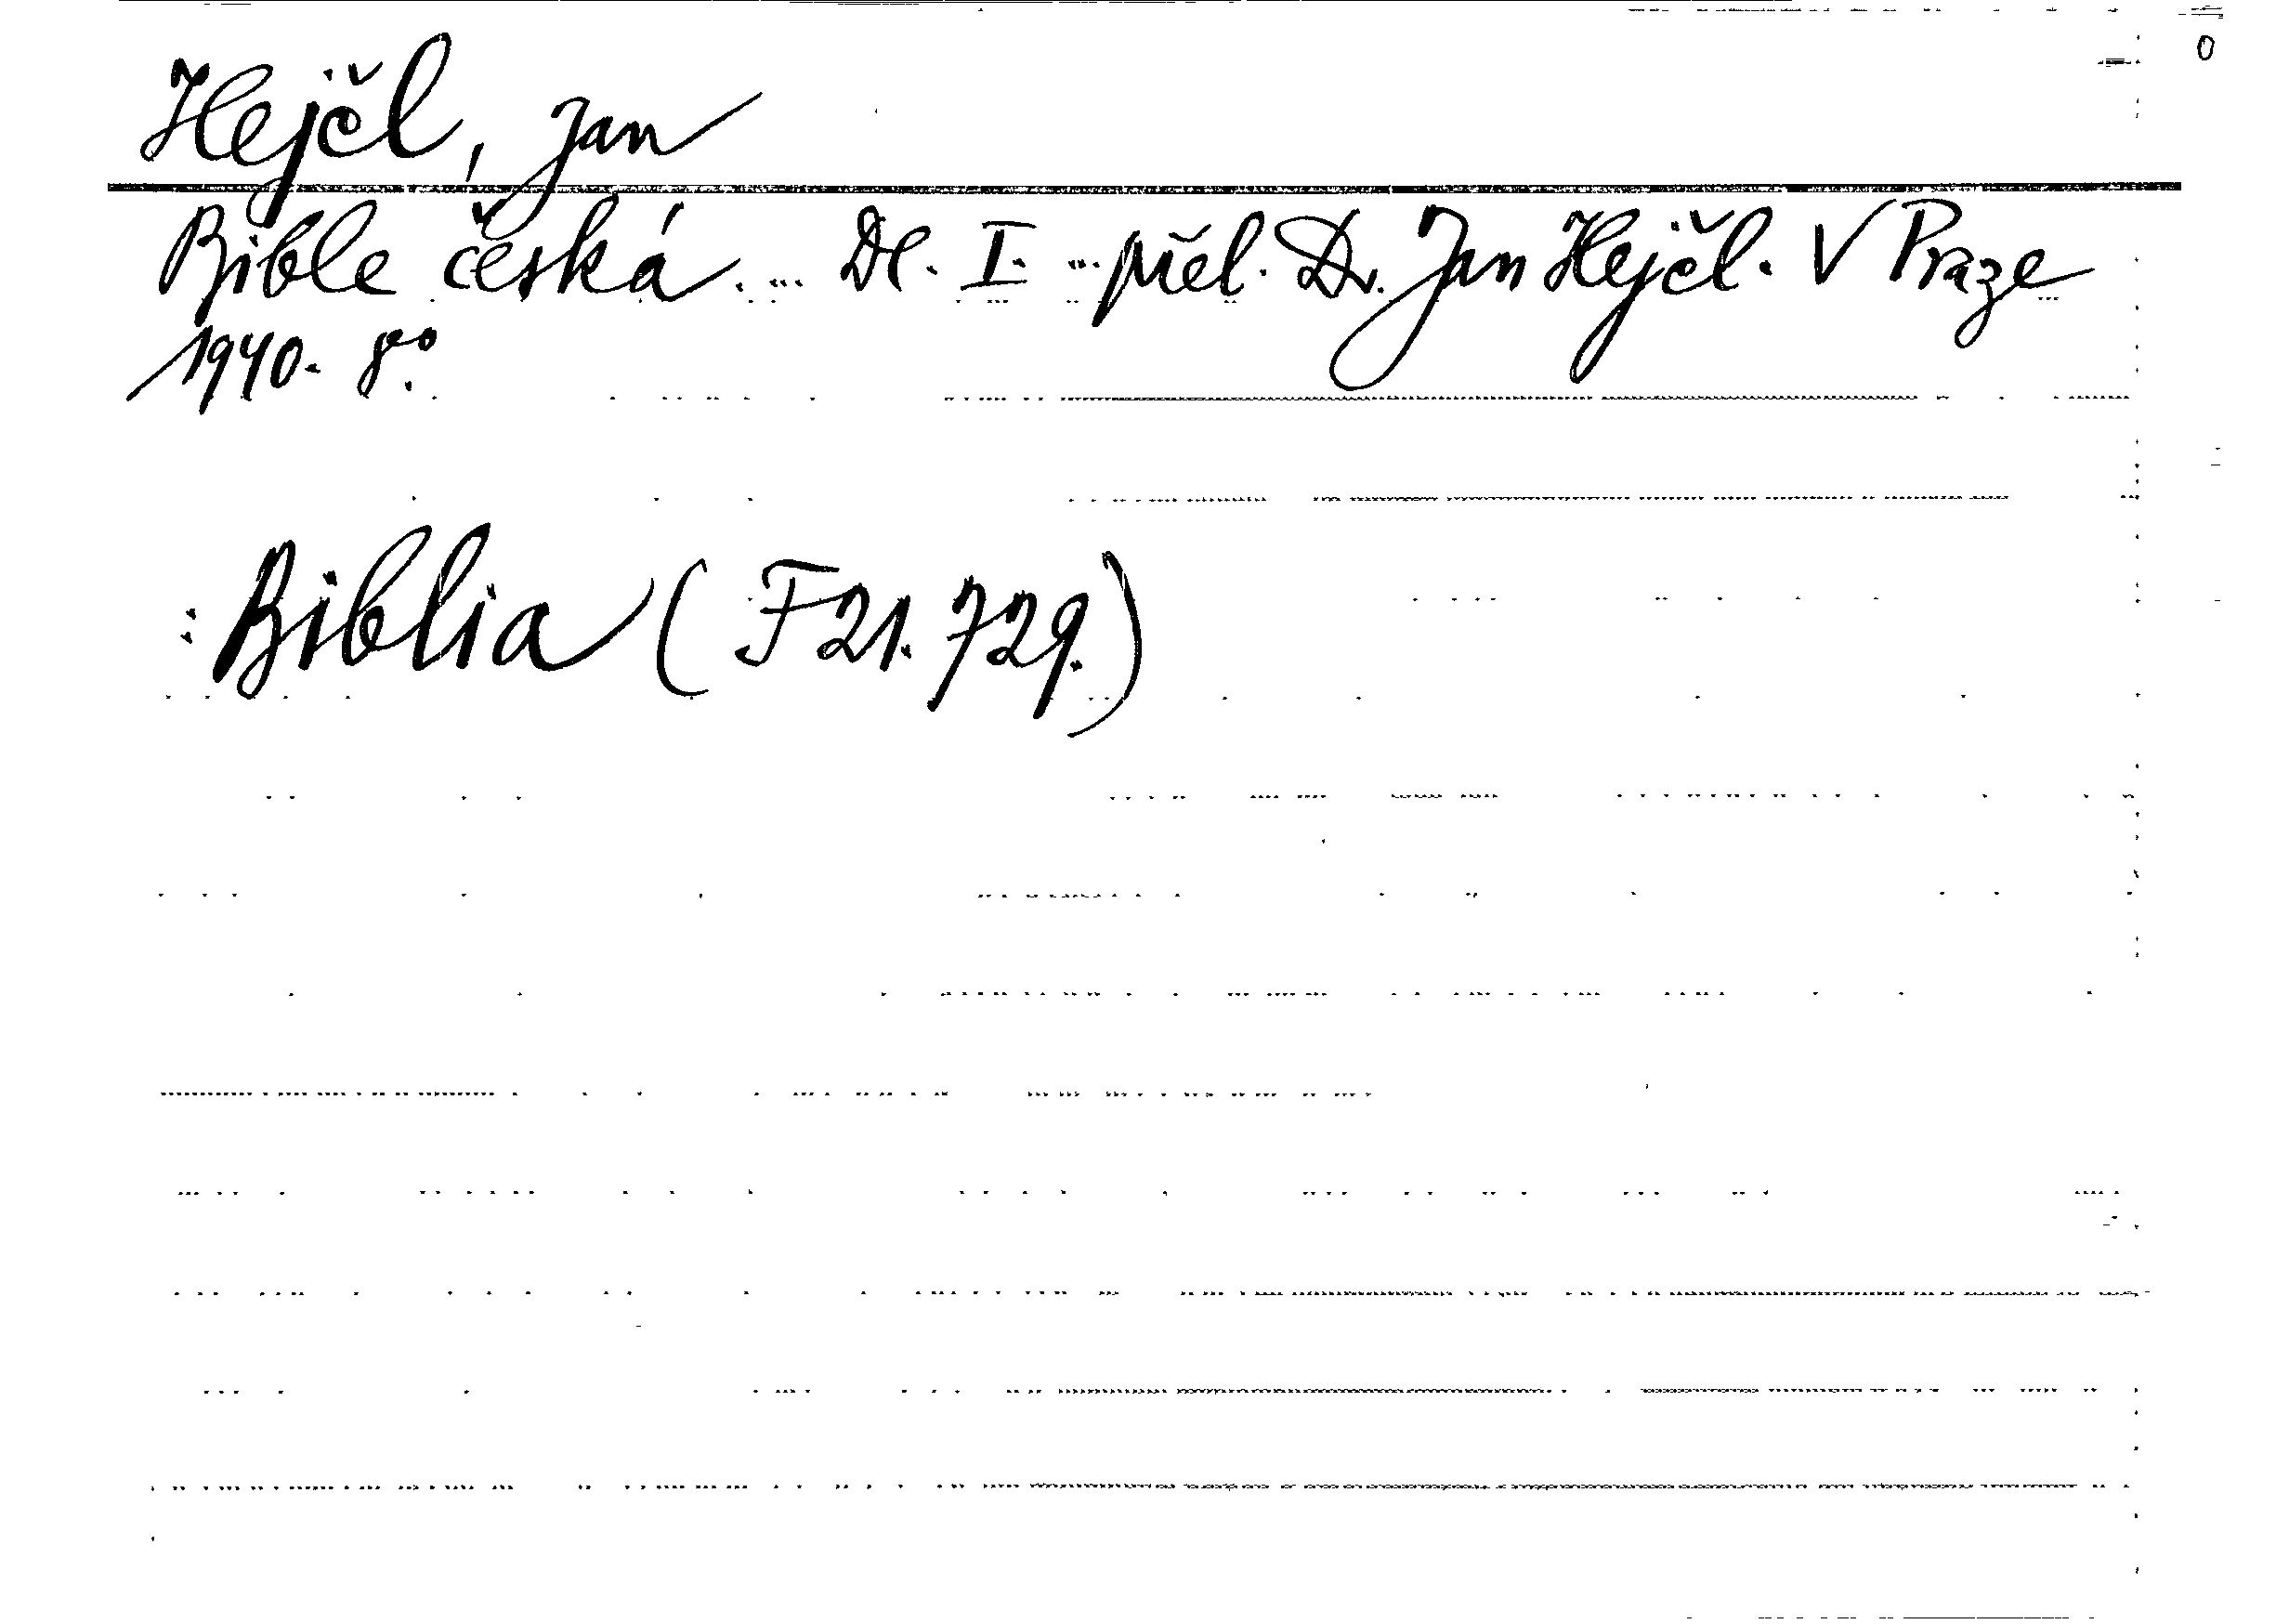 Hejčl, Jan
Bible česká. ... Dl. I. ... přel. Dr. Jan Hejčl. V Praze
1940. 8º.
: Biblia (F 21.729.)